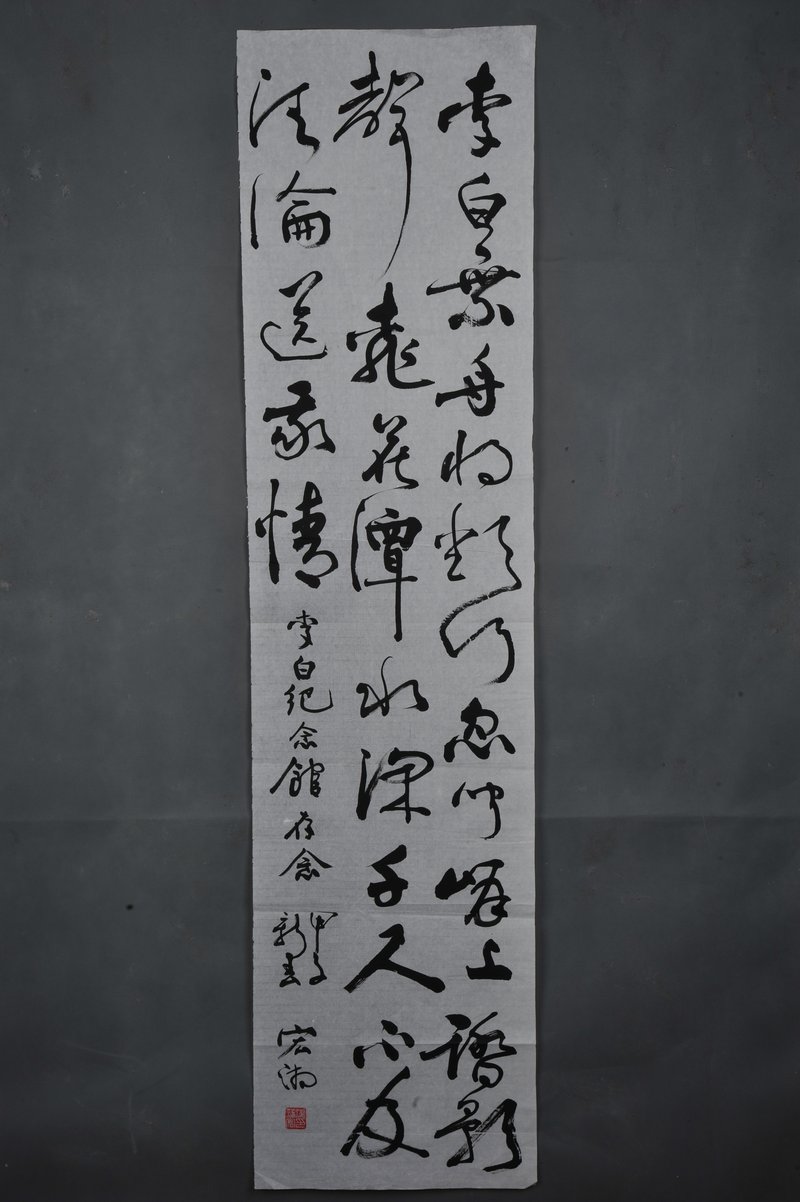 李白乘舟将欲行忽闻岸上踏歌
聲桃花潭水深千尺不及
汪倫送我情
李白纪念館存念
甲子
新春
宏湘